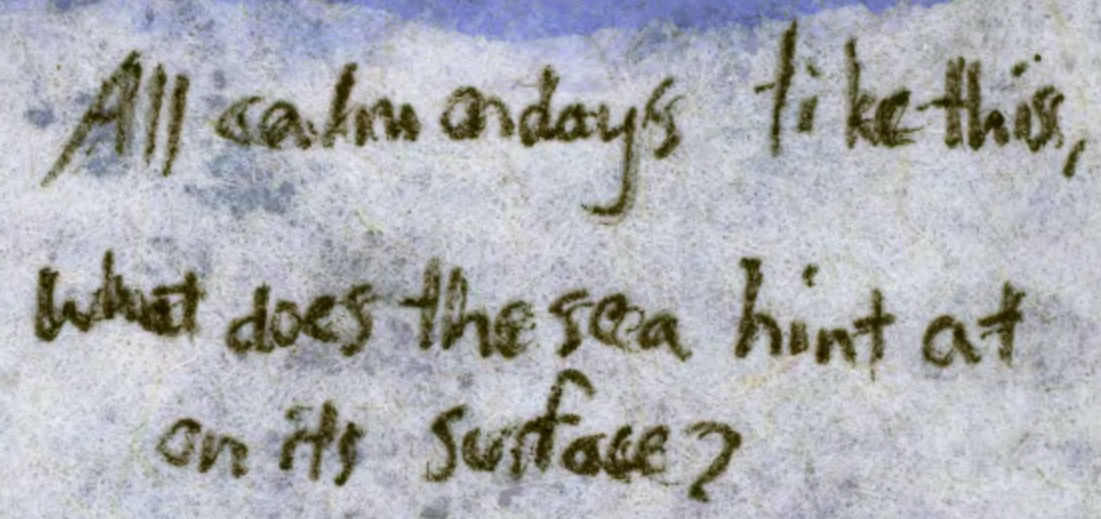 All calm on days like this,
what does the sea hint at
on its surface?